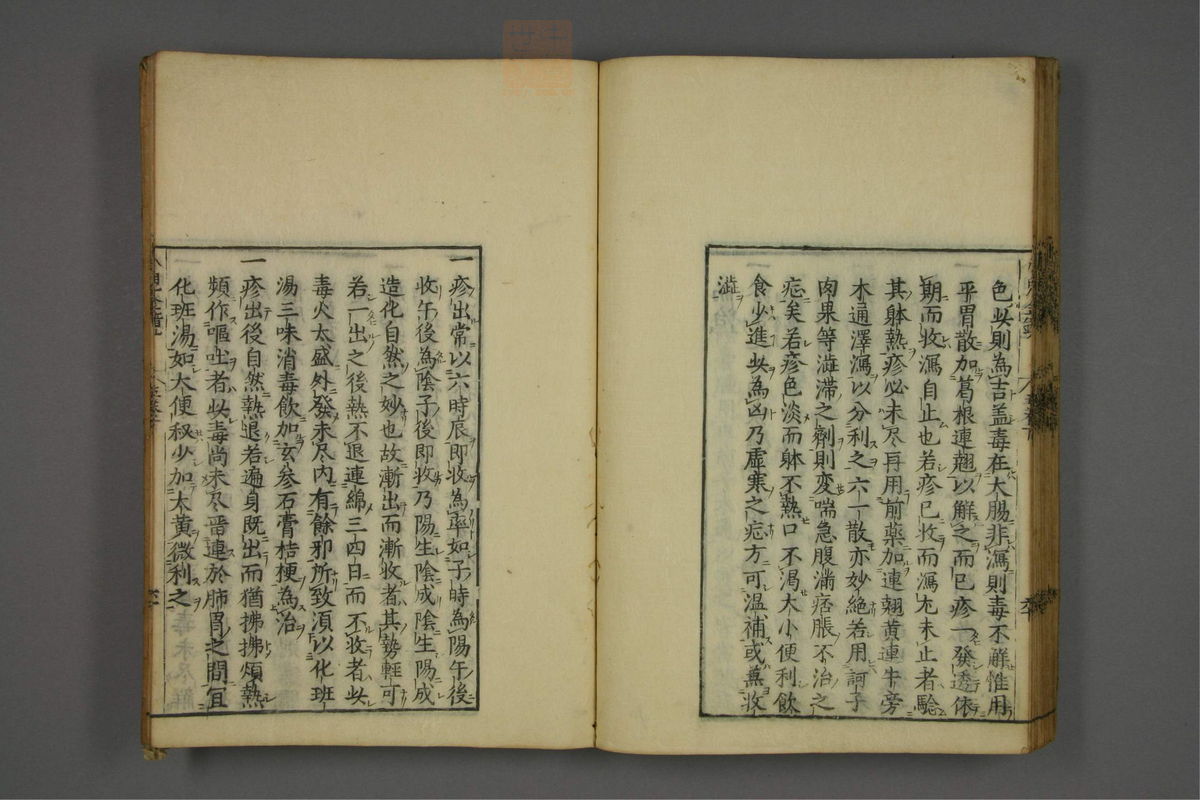 色此則為吉盖毒在大腸非瀉則毒不解惟用
平胃散加葛根連翹以解之而已疹一發透依
期而收瀉自止也若疹已收而瀉尤未止者驗
其躰熱疹必未尽再用前藥加連翹黄連牛旁
木通澤瀉以分利之六一散亦妙絶若用訶子
肉果等澁滯之劑則変喘急腹滿痞脹不治之
症矣若疹色淡而躰不熱口不渇大小便利飲
食少進此為凶乃虚寒之症方可温補或兼收
澁
一疹出常以六時辰即收為率如子時為陽午後
收午後為陰子後即收乃陽生陰成陰生陽成
造化自然之妙也故漸出而漸收者其勢輕可
若一出之後熱不退連綿三四日而不收者此
毒火太盛外發未尽内有餘邪所致湏以化班
湯三味消毒飲加玄参石膏桔梗為治
一疹出後自然熱退若遍身既出而猶拂拂煩熱
頻作嘔吐者此毒尚未尽晋連於肺胃之間宜
化班湯如大便秘少加大黄微利之